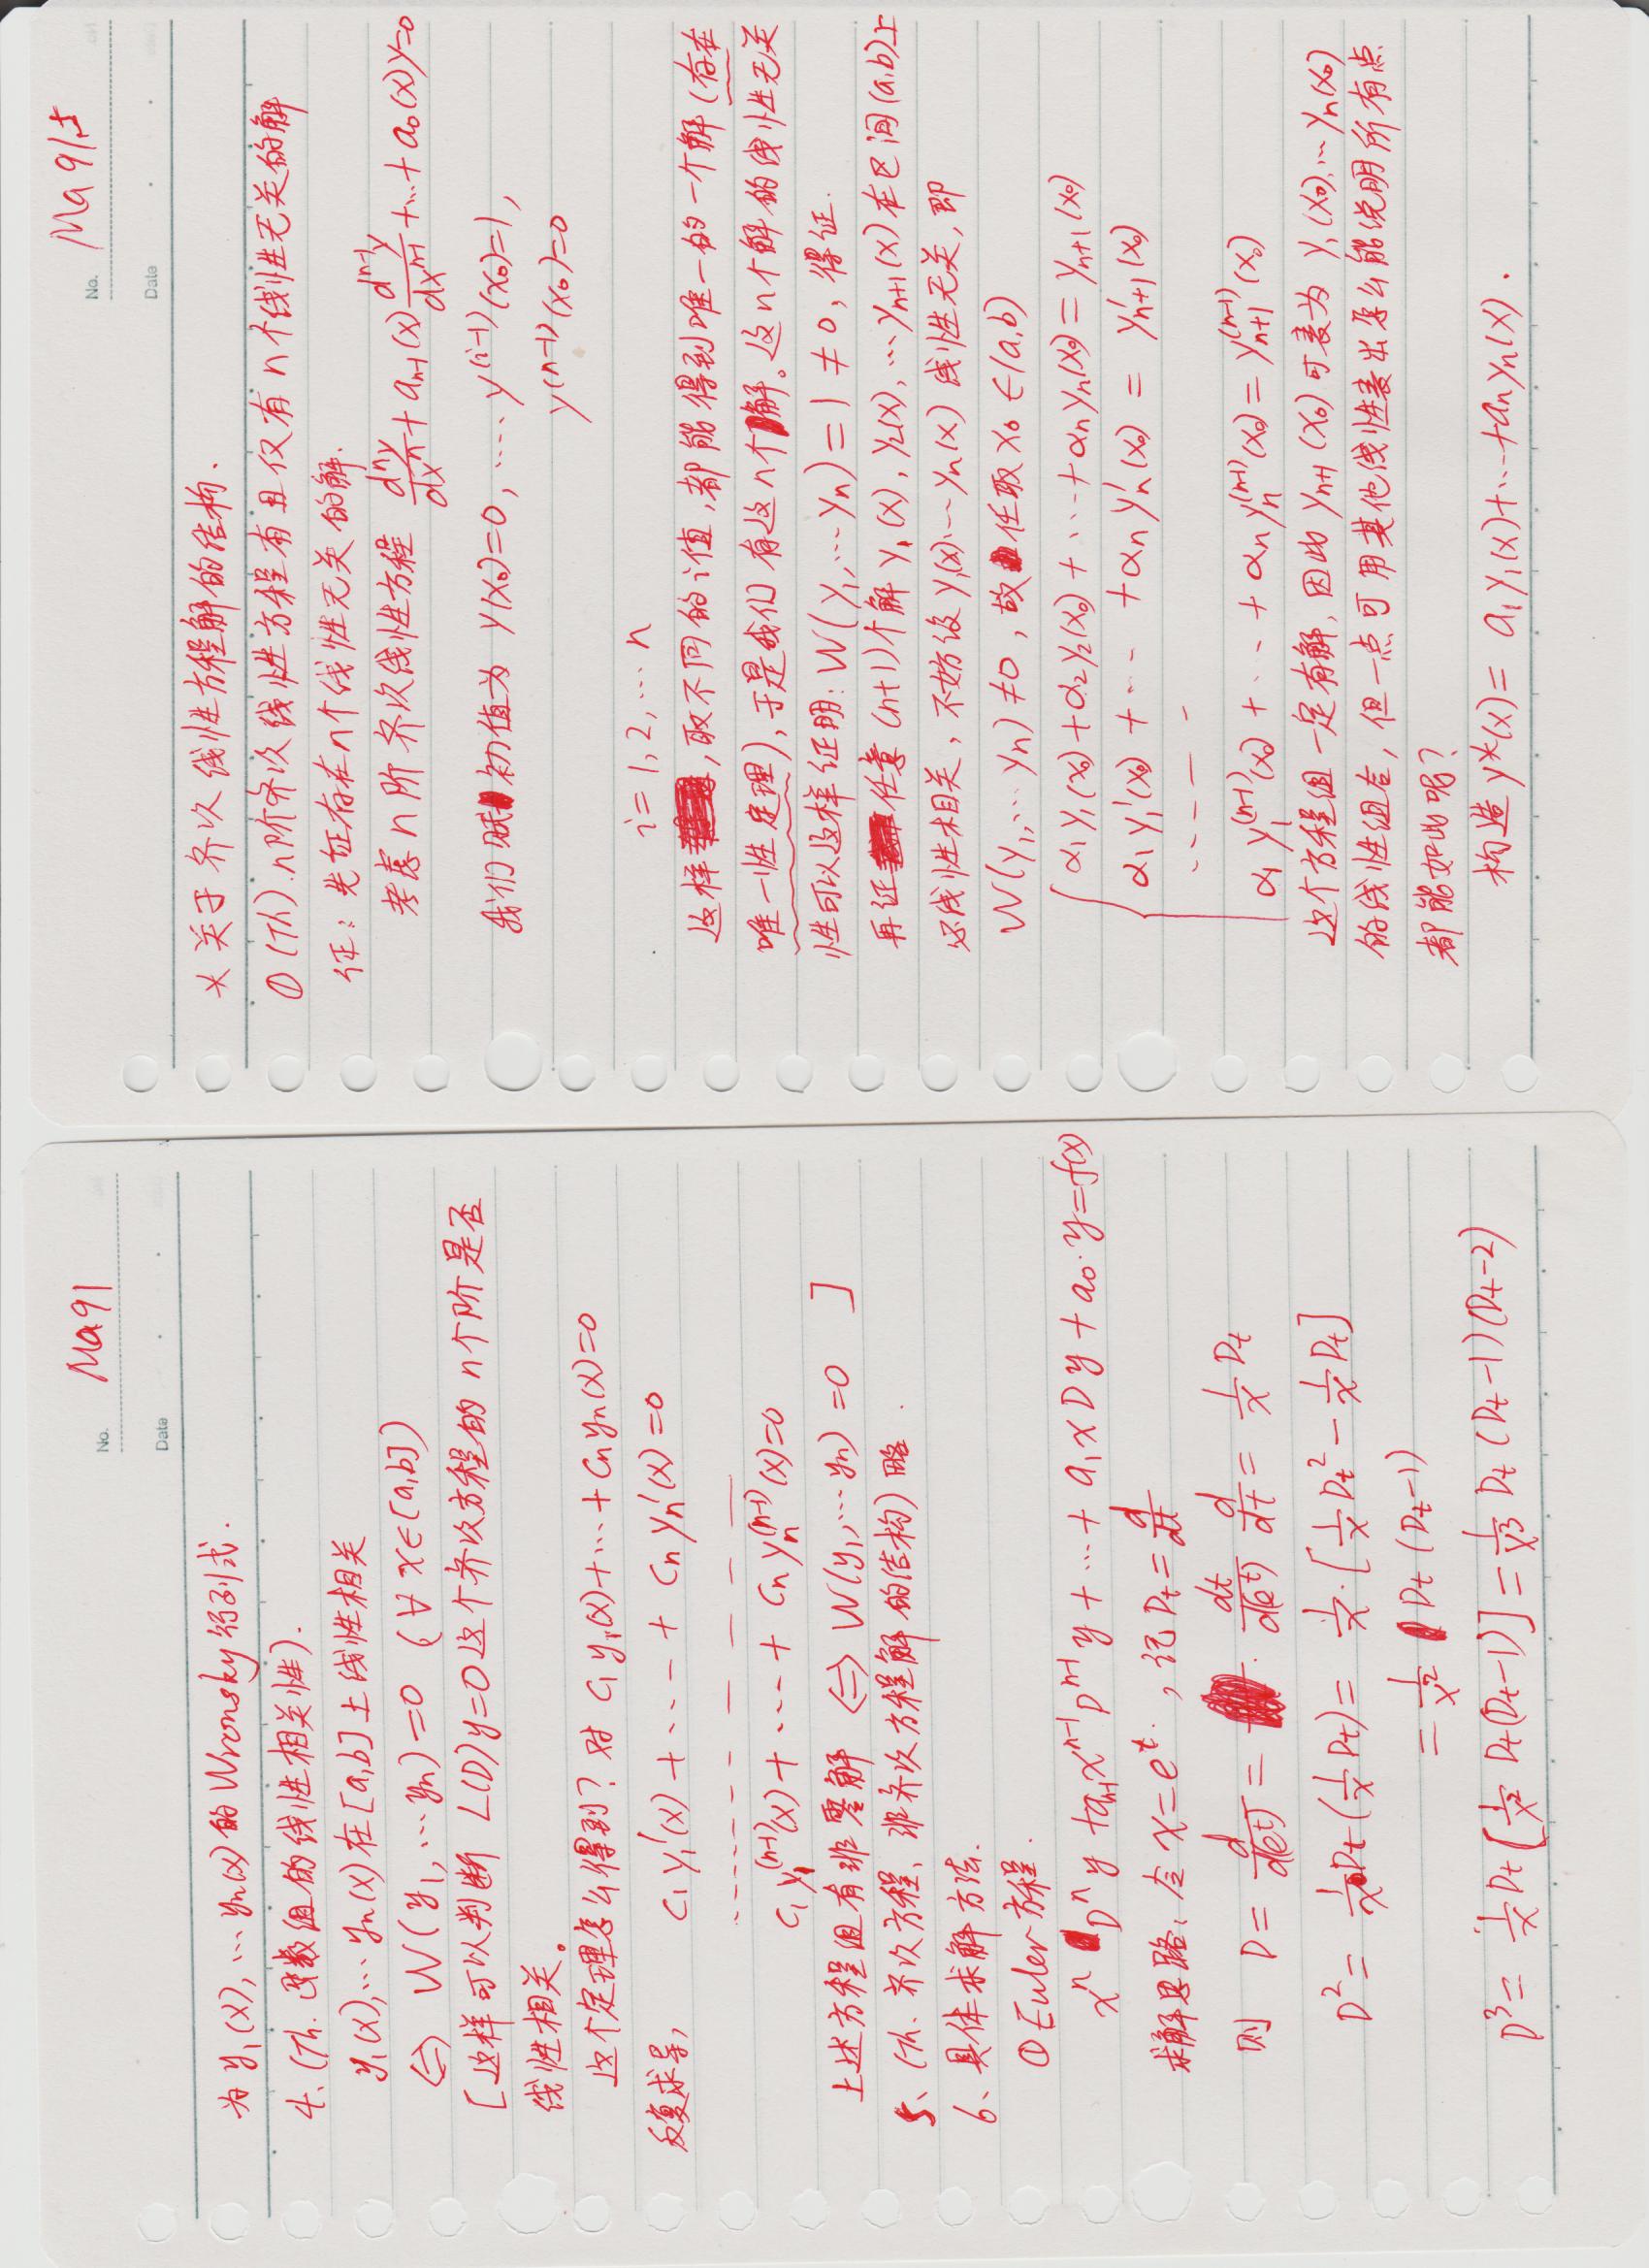 No. Ma91
Date
为 y₁(x), … yₙ(x) 的 Wronsky 行列式.
4、(Th. 函数组的线性相关性).
y₁(x), … yₙ(x) 在 [a,b] 上线性相关
⇔ W(y₁, … yₙ) = 0 (∀ x∈[a,b])
[这样可以判断 L(D)y=0 这个齐次方程的 n个阶是否
线性相关。
这个定理怎么得到? 对 c₁y₁(x)+…+cₙyₙ(x)=0
反复求导, c₁y₁′(x) + … + cₙyₙ′(x)=0
……
c₁y₁⁽ⁿ⁻¹⁾(x) + … + cₙyₙ⁽ⁿ⁻¹⁾(x)=0
上述方程组有非零解 ⇔ W(y₁, … yₙ) = 0 ]
5、(Th. 齐次方程、非齐次方程解的结构) 略.
6、具体求解方法.
① Euler 方程.
xⁿDⁿy + aₙ₋₁xⁿ⁻¹Dⁿ⁻¹y + … + a₁xDy + a₀·y = f(x)
求解思路: 令 x=eᵗ, 记 Dₜ = d/dt
则 D = d/d(eᵗ) = dt/d(eᵗ) d/dt = 1/x Dₜ
D² = 1/x Dₜ(1/x Dₜ) = 1/x·[1/x Dₜ² − 1/x Dₜ]
= 1/x² Dₜ(Dₜ−1)
D³ = 1/x Dₜ[1/x² Dₜ(Dₜ−1)] = 1/x³ Dₜ(Dₜ−1)(Dₜ−2)
No. Ma91.5
Date
* 关于齐次线性方程解的结构.
① (Th). n阶齐次线性方程有且仅有 n个线性无关的解
证: 先证存在n个线性无关的解.
考虑 n阶齐次线性方程 dⁿy/dxⁿ + aₙ₋₁(x) dⁿ⁻¹y/dxⁿ⁻¹ + … + a₀(x)y=0
我们赋初值为 y(x₀)=0, …. y⁽ⁱ⁻¹⁾(x₀)=1,
y⁽ⁿ⁻¹⁾(x₀)=0
i = 1, 2, … n
这样, 取不同的i值, 都能得到唯一的一个解 (存在
唯一性定理), 于是我们有这n个解。这n个解的线性无关
性可以这样证明: W(y₁, … yₙ) = 1 ≠ 0, 得证.
再证任意 (n+1)个解 y₁(x), y₂(x), … yₙ₊₁(x) 在区间 (a,b) 上
必线性相关, 不妨设 y₁(x) … yₙ(x) 线性无关, 即
W(y₁, … yₙ) ≠0, 故任取 x₀ ∈(a,b)
α₁y₁(x₀) + α₂y₂(x₀) + … + αₙyₙ(x₀) = yₙ₊₁(x₀)
α₁y₁′(x₀) + … + αₙyₙ′(x₀) = yₙ₊₁′(x₀)
……
α₁y₁⁽ⁿ⁻¹⁾(x₀) + … + αₙyₙ⁽ⁿ⁻¹⁾(x₀) = yₙ₊₁⁽ⁿ⁻¹⁾(x₀)
这个方程组一定有解, 因此 yₙ₊₁(x₀) 可表为 y₁(x₀), … yₙ(x₀)
的线性组合, 但一点可用其他线性表出怎么能说明所有点
都能如此呢?
构造 y*(x) = a₁y₁(x)+…+aₙyₙ(x).